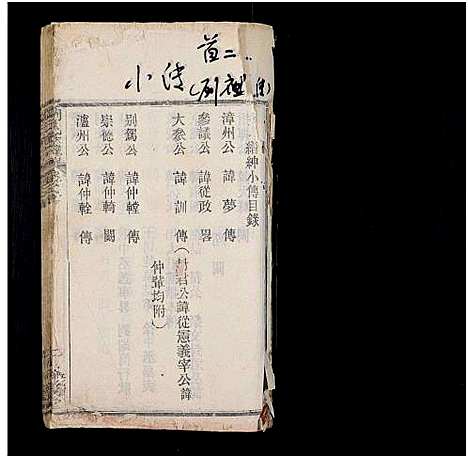 首二
小传(列祖
縉紳小傳目錄
漳州公　諱夢　傳
參議公　諱從政　畧
大參公　諱訓　傳（封君公諱從憲義宰公諱
仲輦均附）
别駕公　諱仲𨎌　傳
崇德公　諱仲輢　闕
瀘州公　諱仲輇　傳